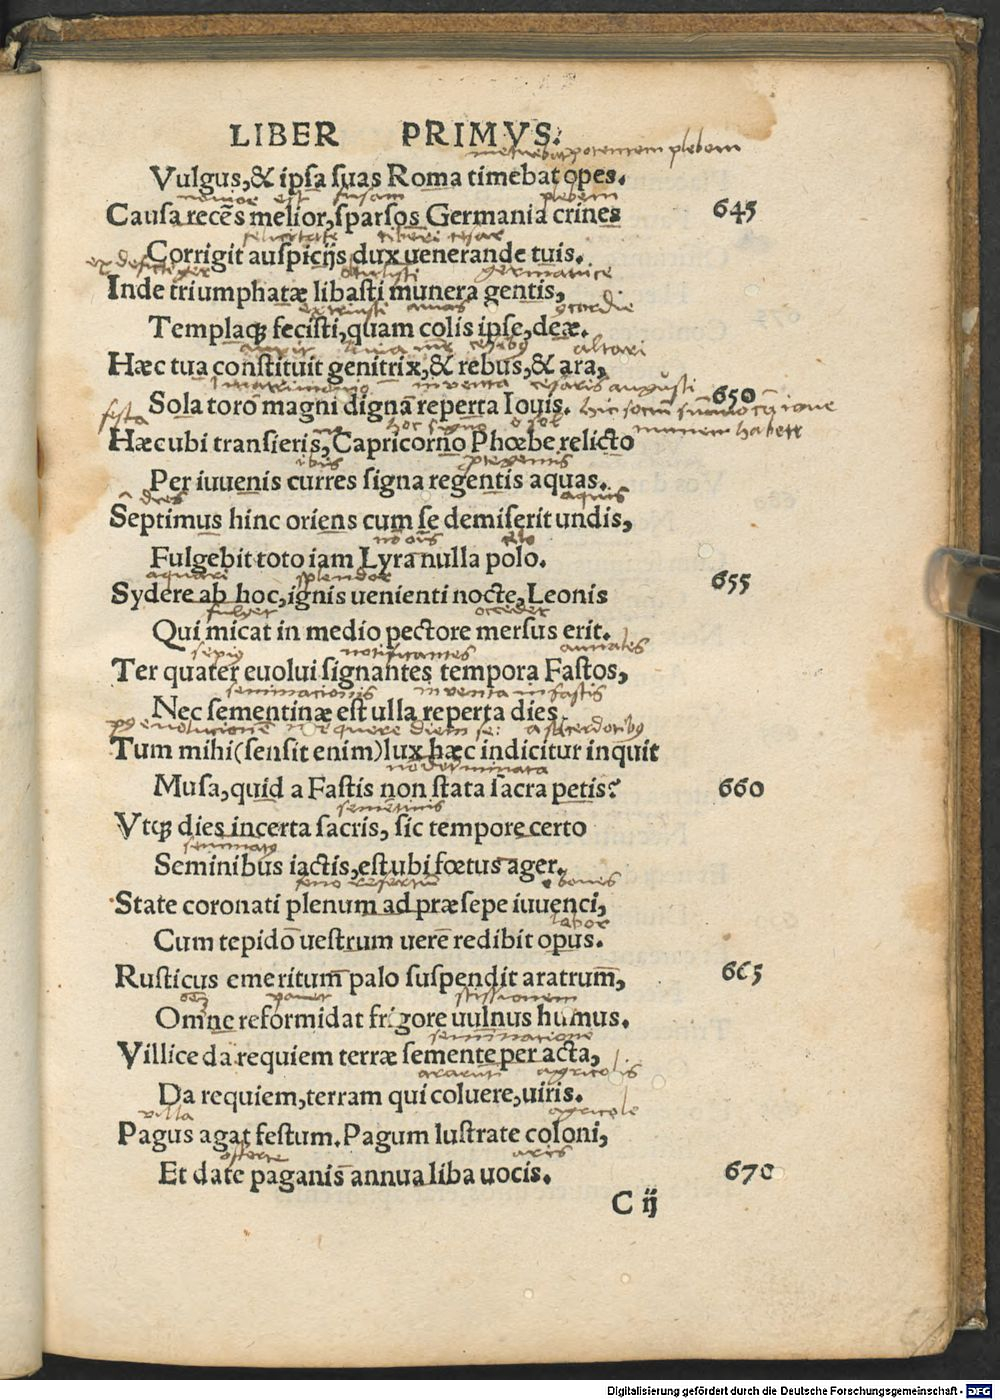 LIBER PRIMVS.
metuebat potentem plebem
Vulgus,& ipsa suas Roma timebat opes.
est fusam plebem
Causa recēs melior, sparsos Germania crines 645
felicitate tiberi cesar
Corrigit auspicijs dux uenerande tuis.
obtulisti germanice
Inde triumphatæ libasti munera gentis,
extruxisti amas
Templaq; fecisti, quam colis ipse, deæ.
altari
Hæc tua constituit genitrix,& rebus,& ara,
inventa cesaris augusti
Sola toro magni digna reperta Iouis. 650
festa hoc signo o sol
Hæc ubi transieris, Capricorno Phœbe relicto
Per iuuenis curres signa regentis aquas.
dies aquis
Septimus hinc oriens cum se demiserit undis,
Fulgebit toto iam Lyra nulla polo.
aquari splendor
Sydere ab hoc, ignis uenienti nocte, Leonis 655
fulget
Qui micat in medio pectore mersus erit.
notificantes annales
Ter quater euolui signantes tempora Fastos,
seminacionis inventa in fastis
Nec sementinæ est ulla reperta dies.
a sacerdotibus
Tum mihi(sensit enim)lux hæc indicitur inquit
Musa, quid a Fastis non stata sacra petis? 660
Vtq; dies incerta sacris, sic tempore certo
Seminibus iactis, est ubi fœtus ager.
o boues
State coronati plenum ad præsepe iuuenci,
labor
Cum tepido uestrum uere redibit opus.
Rusticus emeritum palo suspendit aratrum, 665
Omne reformidat frigore uulnus humus.
seminacione
Villice da requiem terræ semente per acta,
agricolis
Da requiem, terram qui coluere, uiris.
villa agricole
Pagus agat festum. Pagum lustrate coloni,
Et date paganis annua liba uocis. 670
C ij
Digitalisierung gefördert durch die Deutsche Forschungsgemeinschaft - DFG